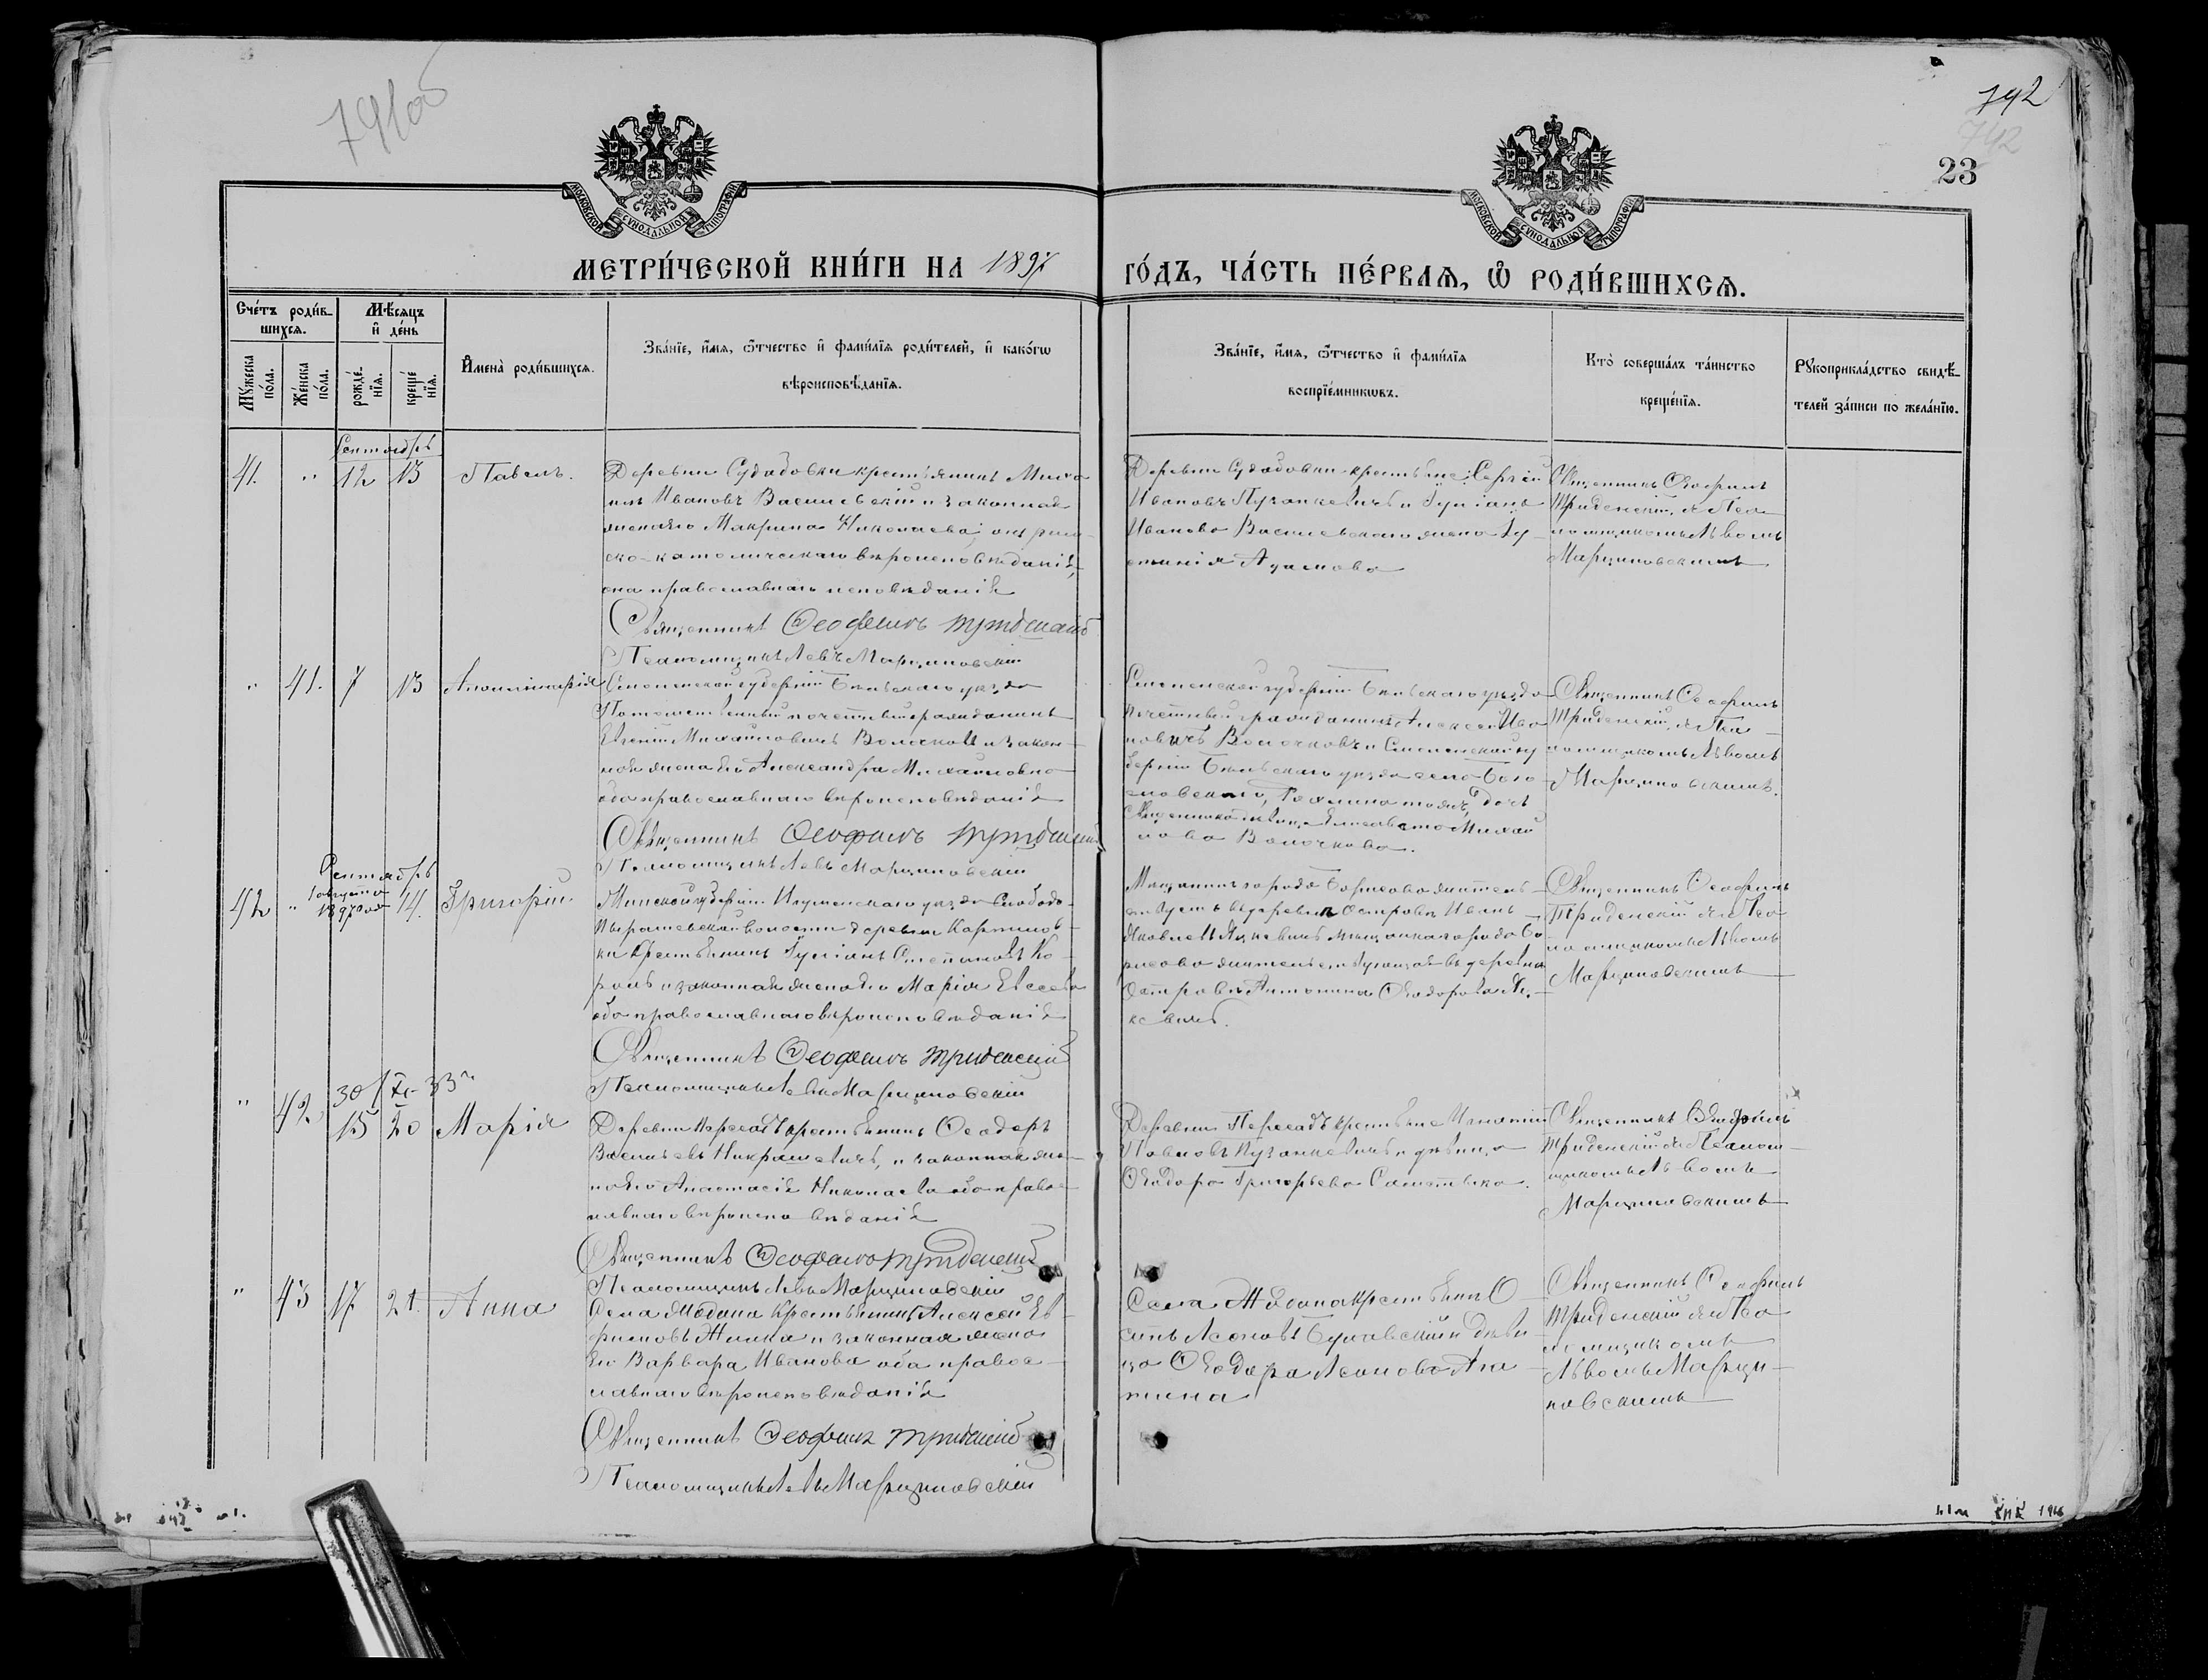 791об
792
742
23
МОСКОВСКОЙ СѴНОДАЛЬНОЙ ТИПОГРАФІИ
МОСКОВСКОЙ СѴНОДАЛЬНОЙ ТИПОГРАФІИ
МЕТРИ́ЧЕСКОЙ КНИ́ГИ НА 1897
ГО́ДЪ, ЧА́СТЬ ПЕ́РВАѦ, Ѽ РОДИ́ВШИХСѦ.
Сче́тъ роди́в-
шихсѧ.
Мѣ́сѧцъ
и҆ де́нь
Мꙋ́жеска
по́ла.
Же́нска
по́ла.
рожде́-
нїѧ.
креще́
нїѧ.
И҆мена̀ роди́вшихсѧ.
Зва́нїе, и҆́мѧ, ѻ҆́тчество и҆ фами́лїѧ роди́телей, и҆ како́гѡ
вѣроисповѣ́данїѧ.
Зва́нїе, и҆́мѧ, ѻ҆́тчество и҆ фами́лїѧ
воспрїе́мникѡвъ.
Кто̀ соверша́лъ та́инство
креще́нїѧ.
Рꙋкоприкла́дство свидѣ́-
телей за́писи по жела́нїю.
Сентябрь
41. " 12 13 Павелъ.
Деревни Судабовки крестьянинъ Миха
илъ Ивановъ Василевскій и законная
жена его Макрина Николаева, онъ рим-
ско-католическаго вѣроисповѣданія,
она православнаго исповѣданія
Священникъ Ѳеофилъ Триденскій
Псаломщикъ Левъ Марциновскій
Деревни Судабовки крестьяне: Сергій
Ивановъ Пузанкевичъ и Іуліана
Иванова Василевскаго жена Iу-
стинія Адамова
Священникъ Ѳеофилъ
Триденскій съ Пса-
ломщикомъ Львомъ
Марциновскимъ
" 41. 7 13 Аполлинарія
Смоленской губерніи Бѣльскаго уѣзда
Потомственный почетный гражданинъ
Евгеній Михайловичъ Волочковъ и закон-
ная жена его Александра Михайловна
оба православнаго вѣроисповѣданія
Священникъ Ѳеофилъ Триденскій
Псаломщикъ Левъ Марциновскій
Смоленской губерніи Бѣльскаго уѣзда
почетный гражданинъ Алексѣй Ива
новичъ Волочковъ и Смоленской гу
берніи Бѣльскаго уѣзда села Бого
словскаго, дочь
Священника дѣвица Елисавета Михай
лова Волочкова.
Священникъ Ѳеофилъ
Триденскій съ Пса-
ломщикомъ Львомъ
Марциновскимъ.
Сентябрь
42 " 1 августа 1897 года 14. Григорій
Минской губерніи Игуменскаго уѣзда Слободо-
Пырашевской волости деревни
ки крестьянинъ Іуліанъ Степановъ Ко-
роль и законная жена его Марія Евсеева
оба православнаго вѣроисповѣданія
Священникъ Ѳеофилъ Триденскій
Псаломщикъ Левъ Марциновскій
Мѣщанинъ города Борисова жительст-
вуетъ въ деревнѣ Островѣ Иванъ
Яковлевъ мѣщанка города Бо-
рисова жительствующая въ деревнѣ
Островѣ Антонина Ѳеодорова
кевичъ.
Священникъ Ѳеофилъ
Триденскій съ Пса-
ломщикомъ Львомъ
Марциновскимъ
" 42 15 20 Марія
Деревни Пересадъ крестьянинъ Ѳеодоръ
Васильевъ Никрашевичъ, и законная же-
на его Анастасія Николаева оба право-
славнаго вѣроисповѣданія
Священникъ Ѳеофилъ Триденскій
Псаломщикъ Левъ Марциновскій
Деревни Пересадъ крестьяне Игнатій
Павловъ Пузанкевичъ и дѣвица
Ѳеодора Григорьева
Священникъ Ѳеофилъ
Триденскій съ Псалом-
щикомъ Львомъ
Марциновскимъ
" 43 17 21. Анна
Села Жодина крестьянинъ Алексѣй Ев-
фимовъ Жилка и законная жена
его Варвара Иванова оба правос-
лавнаго вѣроисповѣданія
Священникъ Ѳеофилъ Триденскій
Псаломщикъ Левъ Марциновскій
Села Жодина крестьянинъ О-
сипъ Леоновъ и дѣви-
ца Ѳеодора Леонова
Священникъ Ѳеофилъ
Триденскій съ Пса
ломщикомъ
Львомъ Марци-
новскимъ